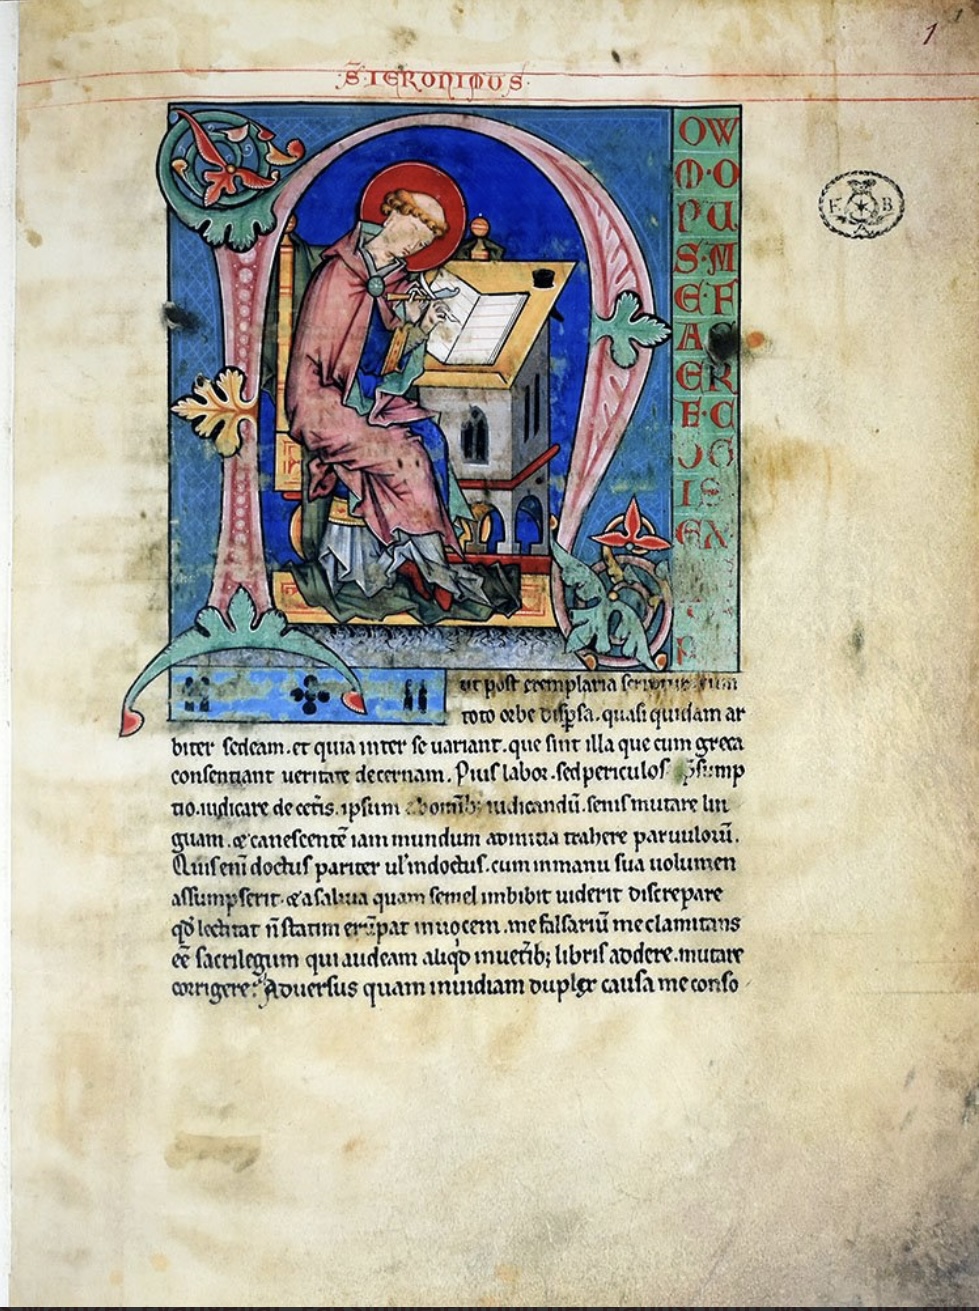 1
S̄·IERONIMUS·
OW
M·O
PU
S·M
E·F
A
ER
E·C
OG
IS
EX
F B
A
ut post exemplaria
toto orbe disp̄sa. quasi quidam ar
biter sedeam. et quia inter se uariant. que sint illa que cum greca
consentiant ueritate decernam. Pius labor. sed periculosa
tio. iudicare de cet̄is. ipsum iudicandū. senis mutare lin
guam. & canescentē iam mundum ad initia trahere paruulorū.
Quis eni doctus pariter ul' indoctus. cum in manu sua uolumen
assumpserit. & a saliua quam semel imbibit uiderit discrepare
qd̄ lectitat n̄ statim erūpat in uocem. me falsariū me clamitans
eē sacrilegum qui audeam aliqd̉ in uet̄ib; libris addere. mutare
corrigere? Aduersus quam inuidiam duplex causa me conso